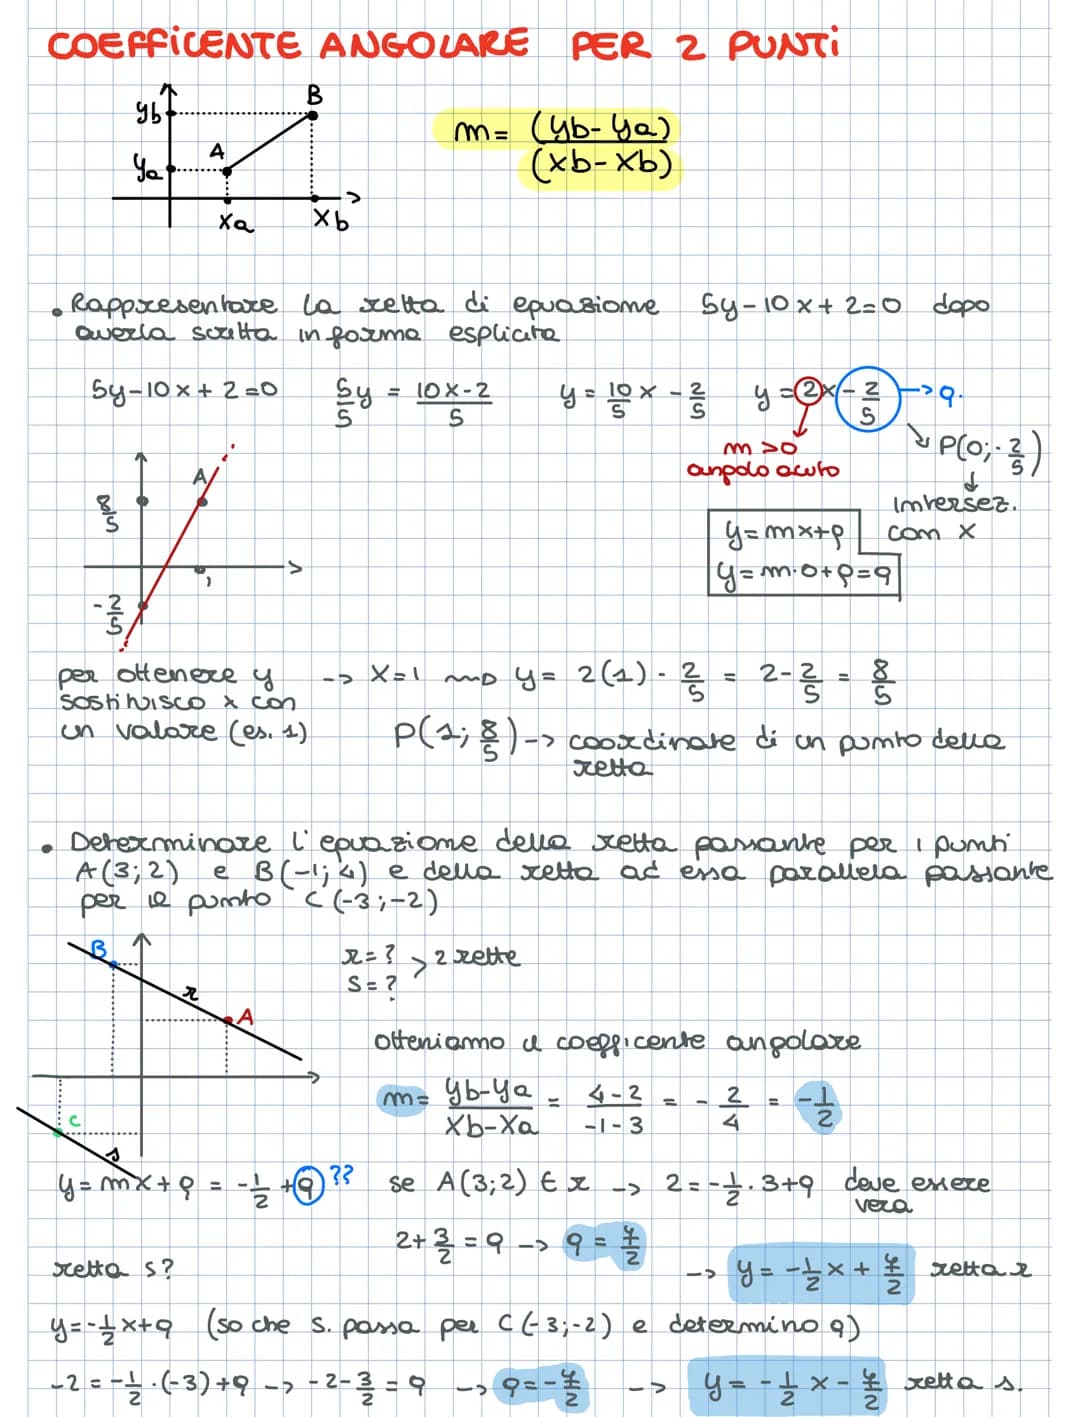 COEFFICENTE ANGOLARE PER 2 PUNTI
yb
B
A
ya
xa
xb
m= (yb-ya)
(xb-xb)
• Rappresentare la retta di equazione 5y-10x+2=0 dopo
averla scritta in forma esplicita
5y-10x+2=0 5/5 y = 10x-2/5 y= 10/5 x - 2/5 y=2x-2/5 -> q.
m>0
angolo acuto
P(0;-2/5)
intersez.
con x
y=mx+q
y=m·0+q=q
A
8/5
1
-2/5
per ottenere y -> x=1 ~> y= 2(1)-2/5 = 2-2/5 = 8/5
sostituisco x con
un valore (es. 1) P(1; 8/5) -> coordinate di un punto della
retta
• Determinare l'equazione della retta passante per i punti
A(3;2) e B(-1;4) e della retta ad essa parallela passante
per il punto C(-3;-2)
B
r
A
C
s
r=? > 2 rette
s=?
otteniamo il coefficente angolare
m= yb-ya/xb-xa = 4-2/-1-3 = -2/4 = -1/2
y=mx+q = -1/2 +q ?? se A(3;2) ∈ r -> 2=-1/2·3+q deve essere
vera
2+3/2=q -> q=7/2
-> y=-1/2x+7/2 retta r
retta s?
y=-1/2x+q (so che s. passa per C(-3;-2) e determino q)
-2=-1/2·(-3)+q -> -2-3/2=q -> q=-7/2 -> y=-1/2x-7/2 retta s.